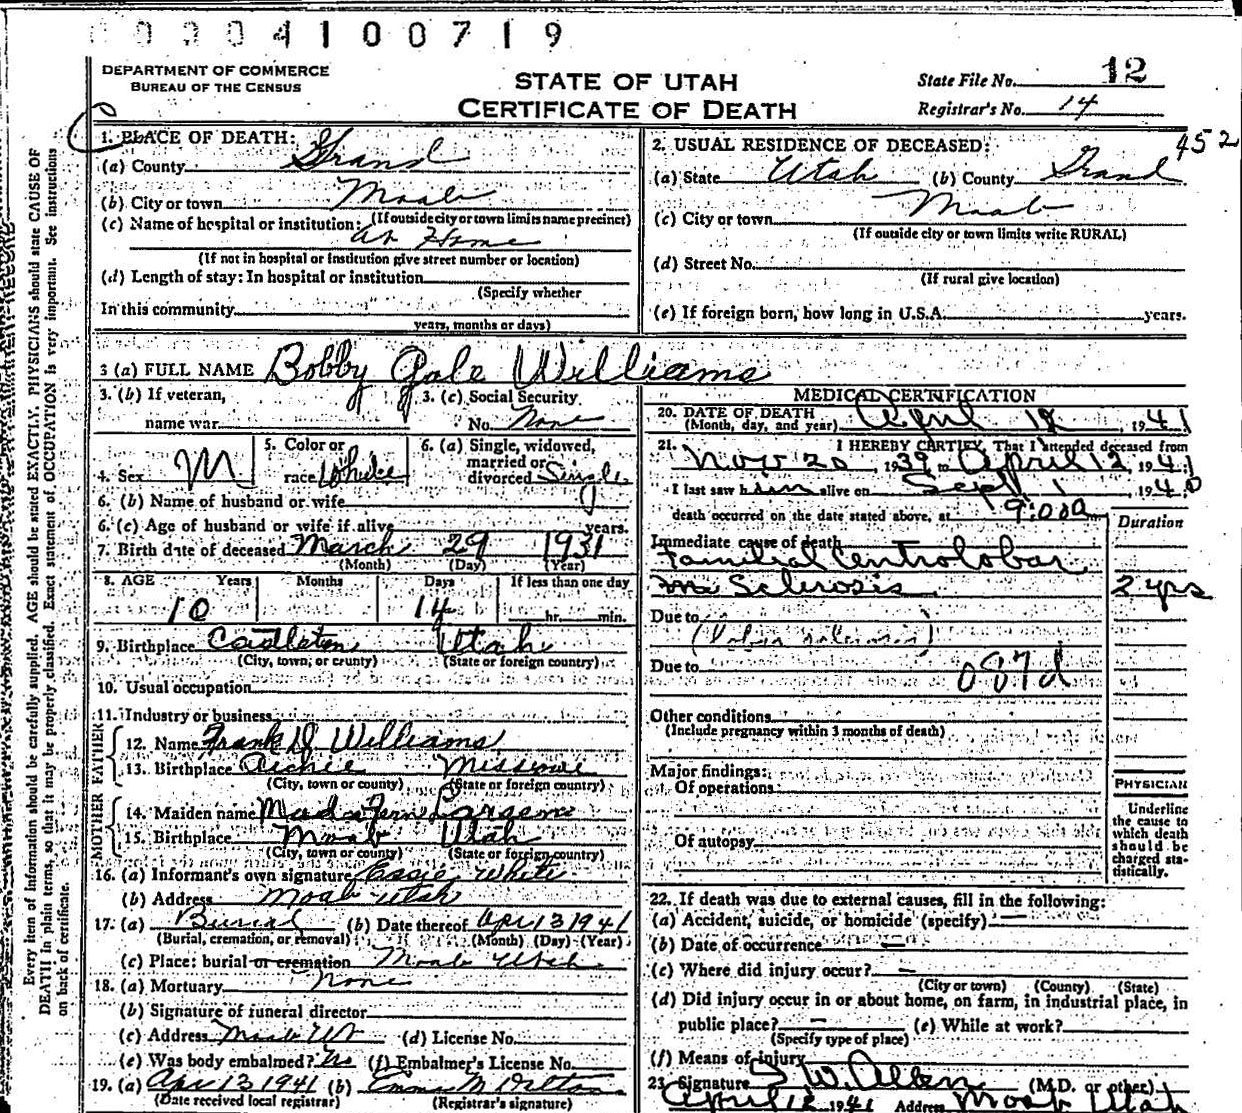 0 0 0 4 1 0 0 7 1 9
DEPARTMENT OF COMMERCE
BUREAU OF THE CENSUS
STATE OF UTAH
CERTIFICATE OF DEATH
State File No. 12
Registrar's No. 14
452
Every item of information should be carefully supplied. AGE should be stated EXACTLY. PHYSICIANS should state CAUSE OF
DEATH in plain terms, so that it may be properly classified. Exact statement of OCCUPATION is very important. See instructions
on back of certificate.
1. PLACE OF DEATH:
(a) County Grand
(b) City or town Moab
(If outside city or town limits name precinct)
(c) Name of hospital or institution:
At Home
(If not in hospital or institution give street number or location)
(d) Length of stay: In hospital or institution
(Specify whether
In this community
years, months or days)
2. USUAL RESIDENCE OF DECEASED:
(a) State Utah (b) County Grand
(c) City or town Moab
(If outside city or town limits write RURAL)
(d) Street No.
(If rural give location)
(e) If foreign born, how long in U.S.A. years.
3 (a) FULL NAME Bobby Gale Williams
3. (b) If veteran,
name war
3. (c) Social Security
No. None
4. Sex M
5. Color or
race White
6. (a) Single, widowed,
married or
divorced Single
6. (b) Name of husband or wife
6. (c) Age of husband or wife if alive years.
7. Birth date of deceased March 29 1931
(Month) (Day) (Year)
8. AGE Years Months Days If less than one day
10 14 hr. min.
9. Birthplace Castleton Utah
(City, town, or county) (State or foreign country)
10. Usual occupation
11. Industry or business
FATHER
12. Name Frank D Williams
13. Birthplace Archie Missouri
(City, town or county) (State or foreign country)
MOTHER
14. Maiden name Fern
15. Birthplace Moab Utah
(City, town or county) (State or foreign country)
16. (a) Informant's own signature Essie White
(b) Address Moab Utah
17. (a) Burial (b) Date thereof Apr 13 1941
(Burial, cremation, or removal) (Month) (Day) (Year)
(c) Place: burial or cremation Moab Utah
18. (a) Mortuary None
(b) Signature of funeral director
(c) Address Moab Ut (d) License No.
(e) Was body embalmed? No (f) Embalmer's License No.
19. (a) Apr 13 1941 (b) M
(Date received local registrar) (Registrar's signature)
MEDICAL CERTIFICATION
20. DATE OF DEATH
(Month, day, and year) April 12, 1941
21. I HEREBY CERTIFY, That I attended deceased from
Nov 20, 1939 to April 12, 1941
I last saw him alive on Sept 1, 1940
death occurred on the date stated above, at 9:00a m
Duration
Immediate cause of death
Familial Centrolobar
Sclerosis 2 yrs
Due to
Due to
087d
Other conditions
(Include pregnancy within 3 months of death)
Major findings:
Of operations
Of autopsy
PHYSICIAN
Underline
the cause to
which death
should be
charged sta-
tistically.
22. If death was due to external causes, fill in the following:
(a) Accident, suicide, or homicide (specify) —
(b) Date of occurrence —
(c) Where did injury occur? —
(City or town) (County) (State)
(d) Did injury occur in or about home, on farm, in industrial place, in
public place? — (e) While at work?
(Specify type of place)
(f) Means of injury
23. Signature W. Allen (M.D. or other)
April 12 1941 Address Moab Utah